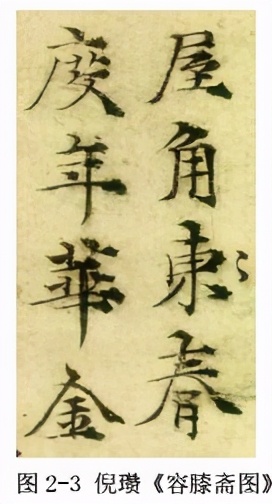 屋角東春
度年華金
图 2-3 倪瓒《容膝斋图》